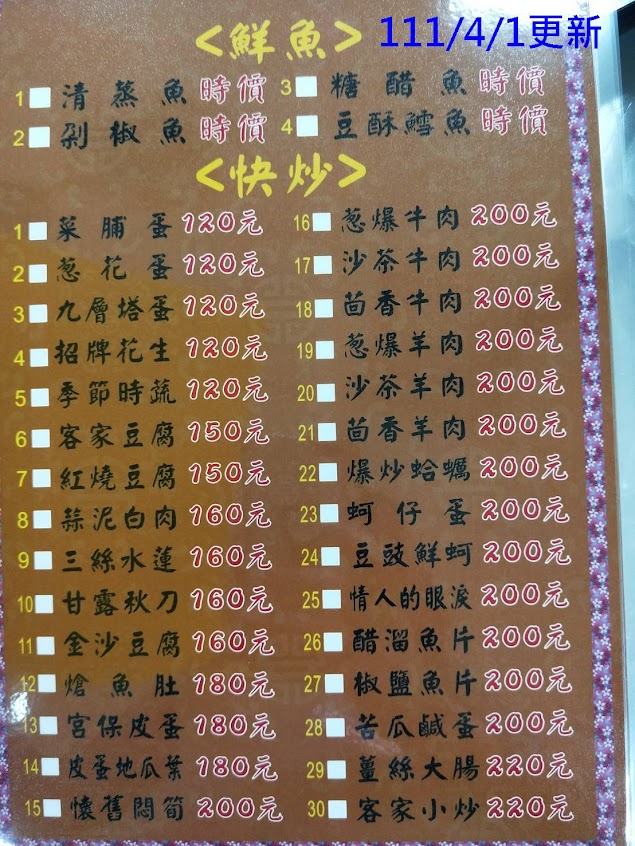 <鮮魚> 111/4/1更新
1 清蒸魚 時價
2 剁椒魚 時價
3 糖醋魚 時價
4 豆酥鱈魚 時價
<快炒>
1 菜脯蛋 120元
2 葱花蛋 120元
3 九層塔蛋 120元
4 招牌花生 120元
5 季節時蔬 120元
6 客家豆腐 150元
7 紅燒豆腐 150元
8 蒜泥白肉 160元
9 三絲水蓮 160元
10 甘露秋刀 160元
11 金沙豆腐 160元
12 熗魚肚 180元
13 宮保皮蛋 180元
14 皮蛋地瓜葉 180元
15 懷舊悶筍 200元
16 葱爆牛肉 200元
17 沙茶牛肉 200元
18 茴香牛肉 200元
19 葱爆羊肉 200元
20 沙茶羊肉 200元
21 茴香羊肉 200元
22 爆炒蛤蠣 200元
23 蚵仔蛋 200元
24 豆豉鮮蚵 200元
25 情人的眼淚 200元
26 醋溜魚片 200元
27 椒鹽魚片 200元
28 苦瓜鹹蛋 200元
29 薑絲大腸 220元
30 客家小炒 220元